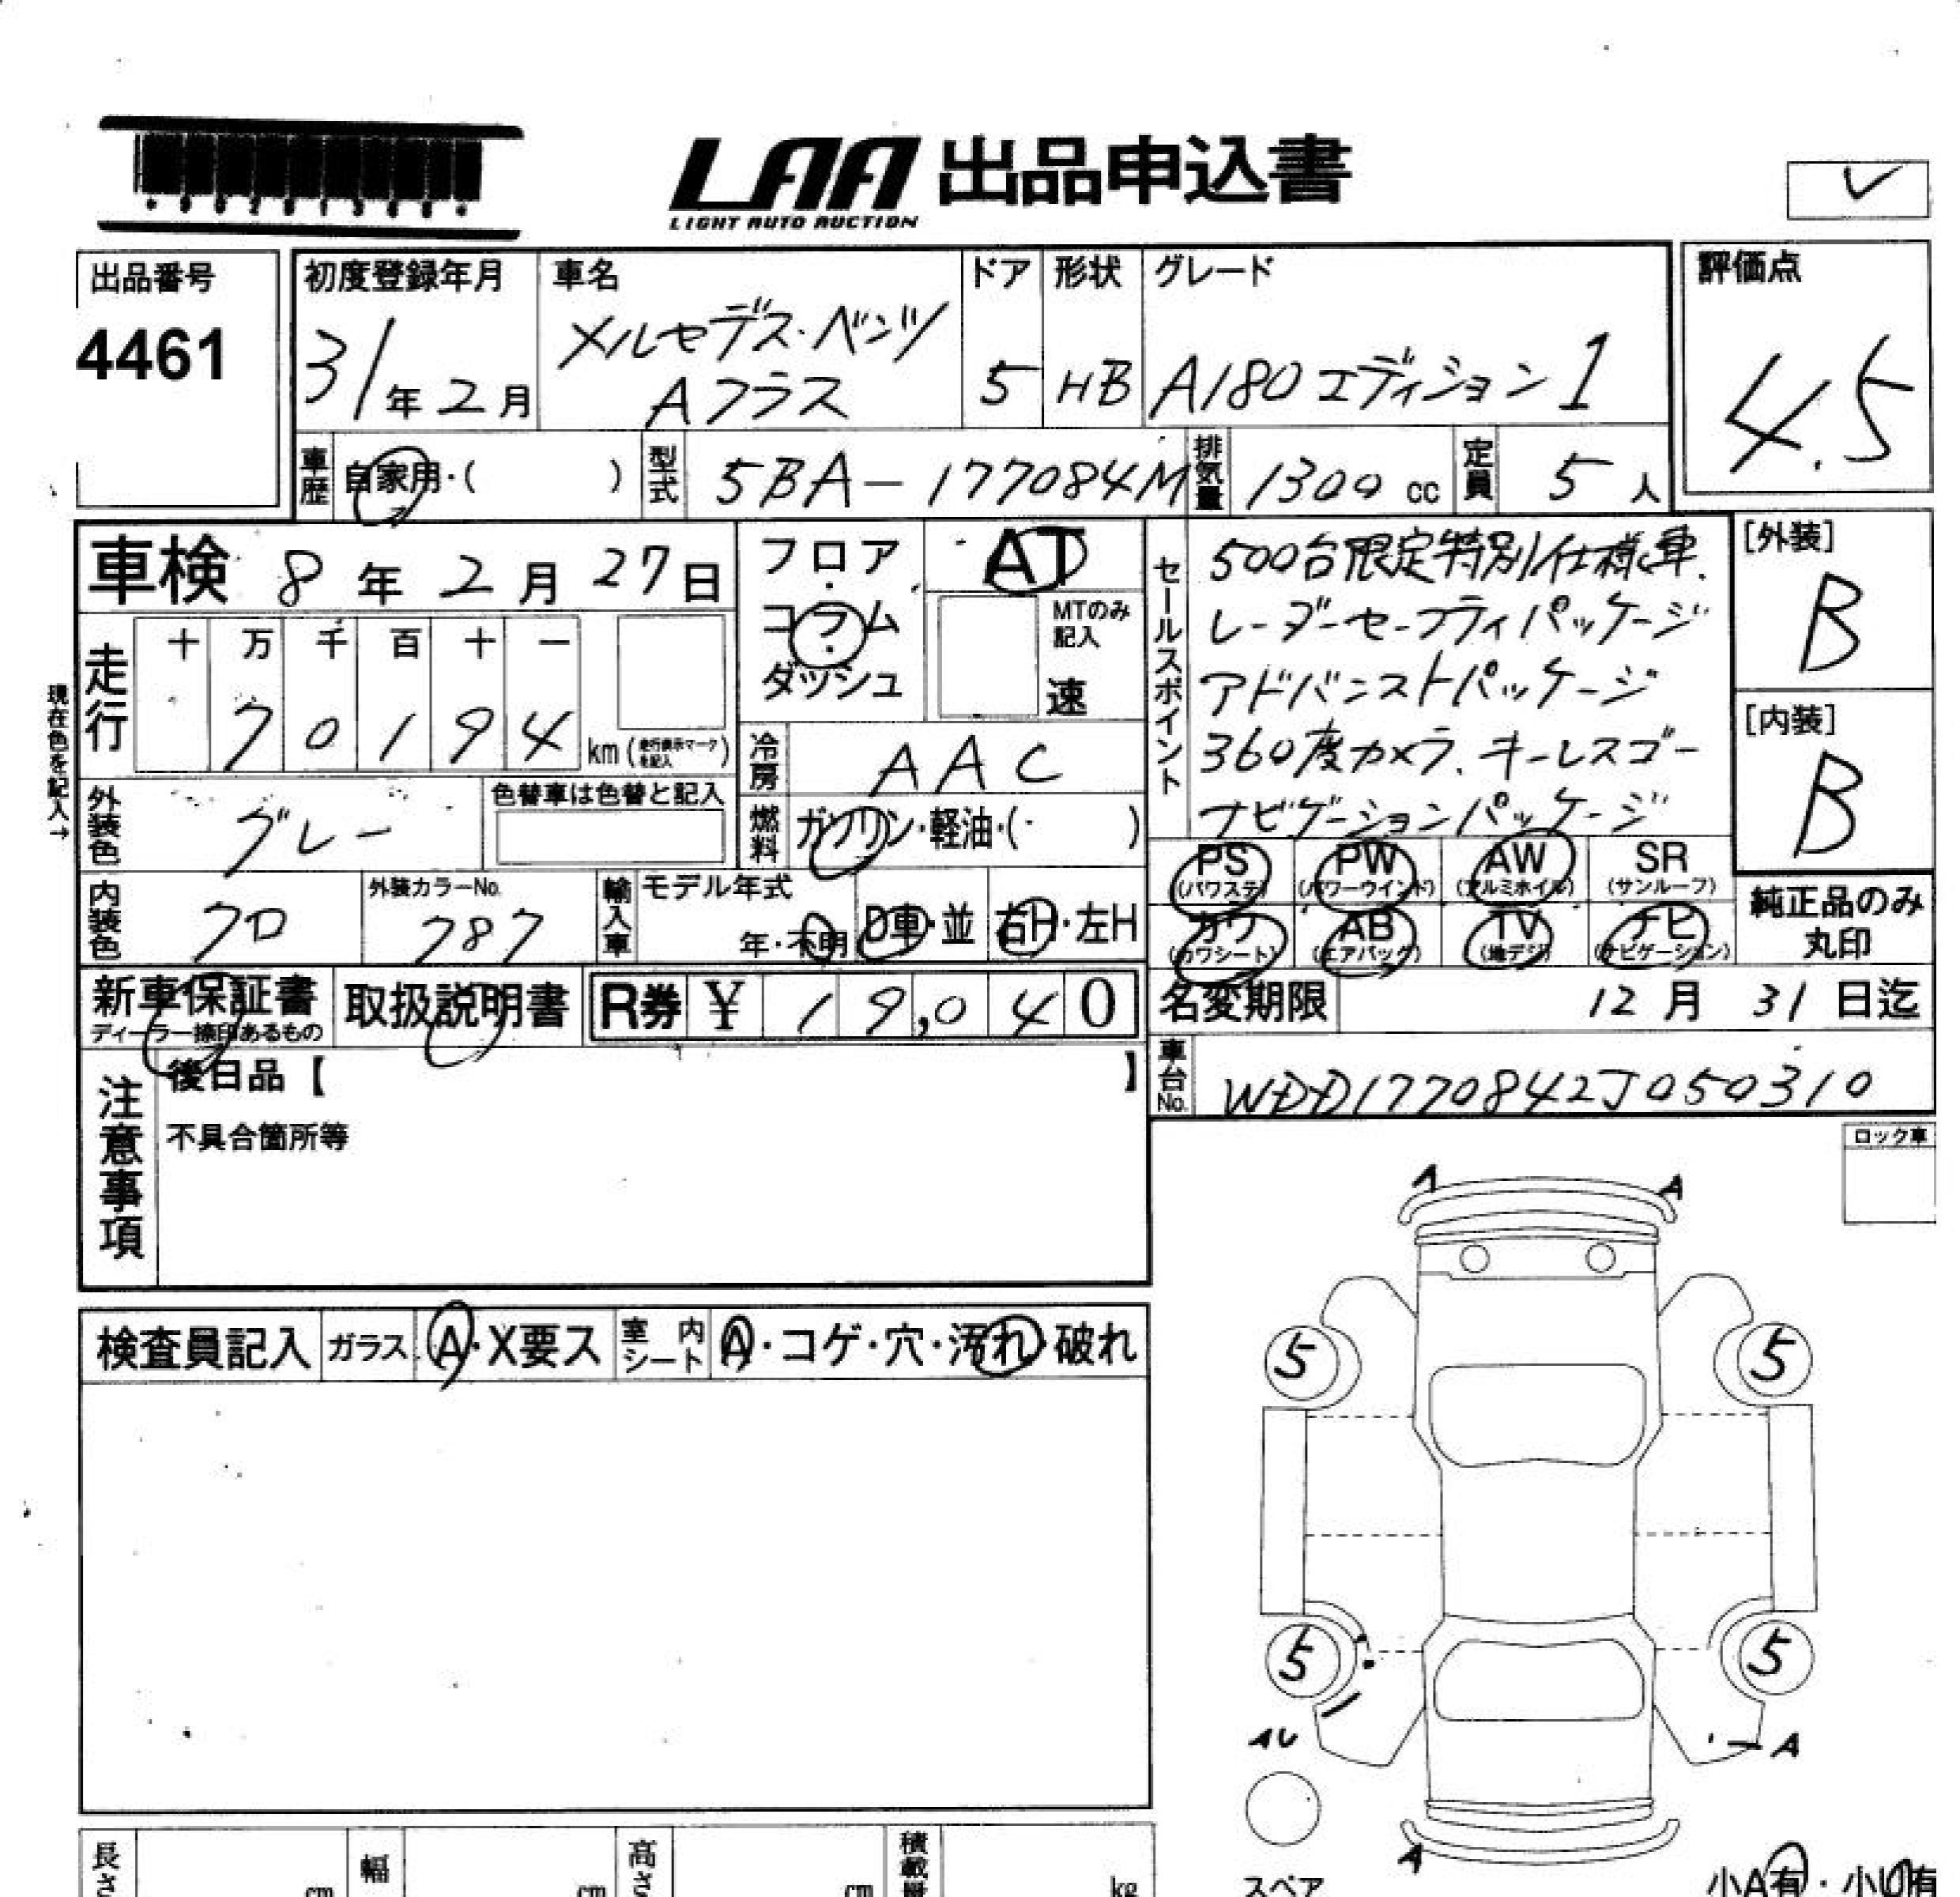 LAA 出品申込書
LIGHT AUTO AUCTION
✓
出品番号
4461
初度登録年月
31年2月
車名
メルセデス・ベンツ
Aクラス
ドア
5
形状
HB
グレード
A180 エディション1
評価点
4.5
車歴 自家用・( )
型式 5BA-177084M
排気量 1300 cc
定員 5人
車検 8年2月27日
フロア・コラム・ダッシュ
AT
MTのみ記入
速
セールスポイント
500台限定特別仕様車.
レーダーセーフティパッケージ
アドバンストパッケージ
360度カメラ. キーレスゴー
ナビゲーションパッケージ
[外装]
B
[内装]
B
現在色を記入→
走行
十 万 千 百 十 一
7 0 1 9 4 km (走行表示マークを記入)
冷房 AAC
外装色 グレー
色替車は色替と記入
燃料 ガソリン・軽油・( )
内装色 クロ
外装カラーNo. 787
輸入車 モデル年式
年・不明 D車・並 右H・左H
PS (パワステ)
PW (パワーウインド)
AW (アルミホイル)
SR (サンルーフ)
カワ (カワシート)
AB (エアバック)
TV (地デジ)
ナビ (ナビゲーション)
純正品のみ
丸印
新車保証書
ディーラー捺印あるもの
取扱説明書
R券 ¥ 19,040
名変期限 12月31日迄
注意事項
後日品【 】
不具合箇所等
車台No. WDD1770842J050310
ロック車
検査員記入 ガラス A・X要ス 室内シート A・コゲ・穴・汚れ・破れ
A A
5 5
5 5
AU A
A
スペア
小A有・小U有
長さ cm 幅 cm 高さ cm 積載量 kg